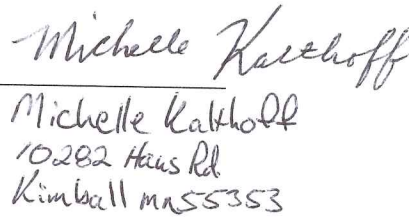 Michelle Kalthoff
Michelle Kalthoff
10282 Haus Rd
Kimball mn 55353